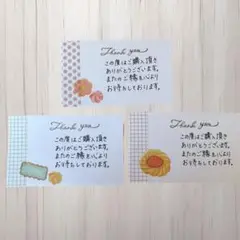 Thank you
この度はご購入頂き
ありがとうございます。
またのご縁を心より
お待ちしております。
Thank you
この度はご購入頂き
ありがとうございます。
またのご縁を心より
お待ちしております。
Thank you
この度はご購入頂き
ありがとうございます。
またのご縁を心より
お待ちしております。